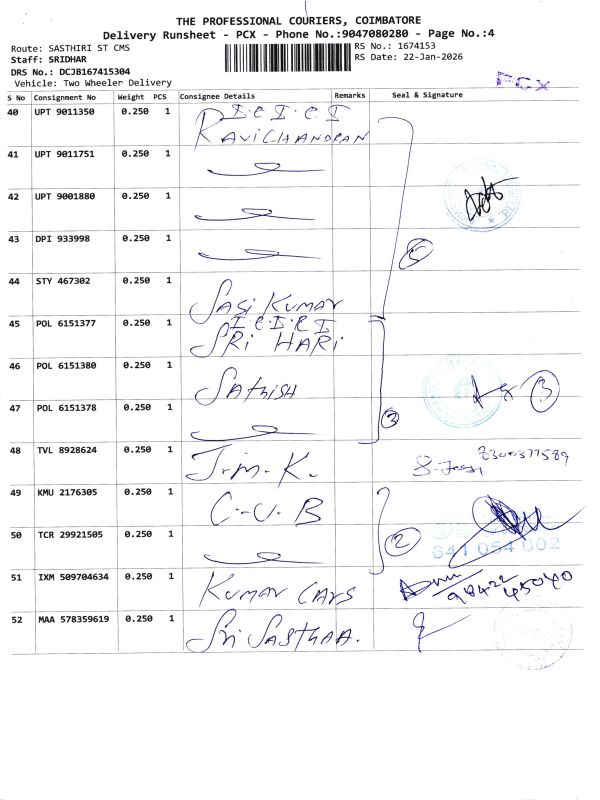 THE PROFESSIONAL COURIERS, COIMBATORE
Delivery Runsheet - PCX - Phone No.:9047080280 - Page No.:4
Route: SASTHIRI ST CMS
RS No.: 1674153
Staff: SRIDHAR
RS Date: 22-Jan-2026
DRS No.: DCJB167415304
PCX
Vehicle: Two Wheeler Delivery
S No Consignment No Weight PCS Consignee Details Remarks Seal & Signature
40 UPT 9011350 0.250 1 I.C.I.C.I
RAVICHANDRAN
41 UPT 9011751 0.250 1
42 UPT 9001880 0.250 1
43 DPI 933998 0.250 1
5
44 STY 467302 0.250 1 SASI KUMAR
45 POL 6151377 0.250 1 I.C.I.C.I
SRI HARI
46 POL 6151380 0.250 1 SAthiSH
3
47 POL 6151378 0.250 1
3
48 TVL 8928624 0.250 1 J.m.K.
49 KMU 2176305 0.250 1 C.U.B
50 TCR 29921505 0.250 1
2
641 054 002
51 IXM 509704634 0.250 1 KUMAR CARS
98422 45040
52 MAA 578359619 0.250 1 Sri SASTHAA.